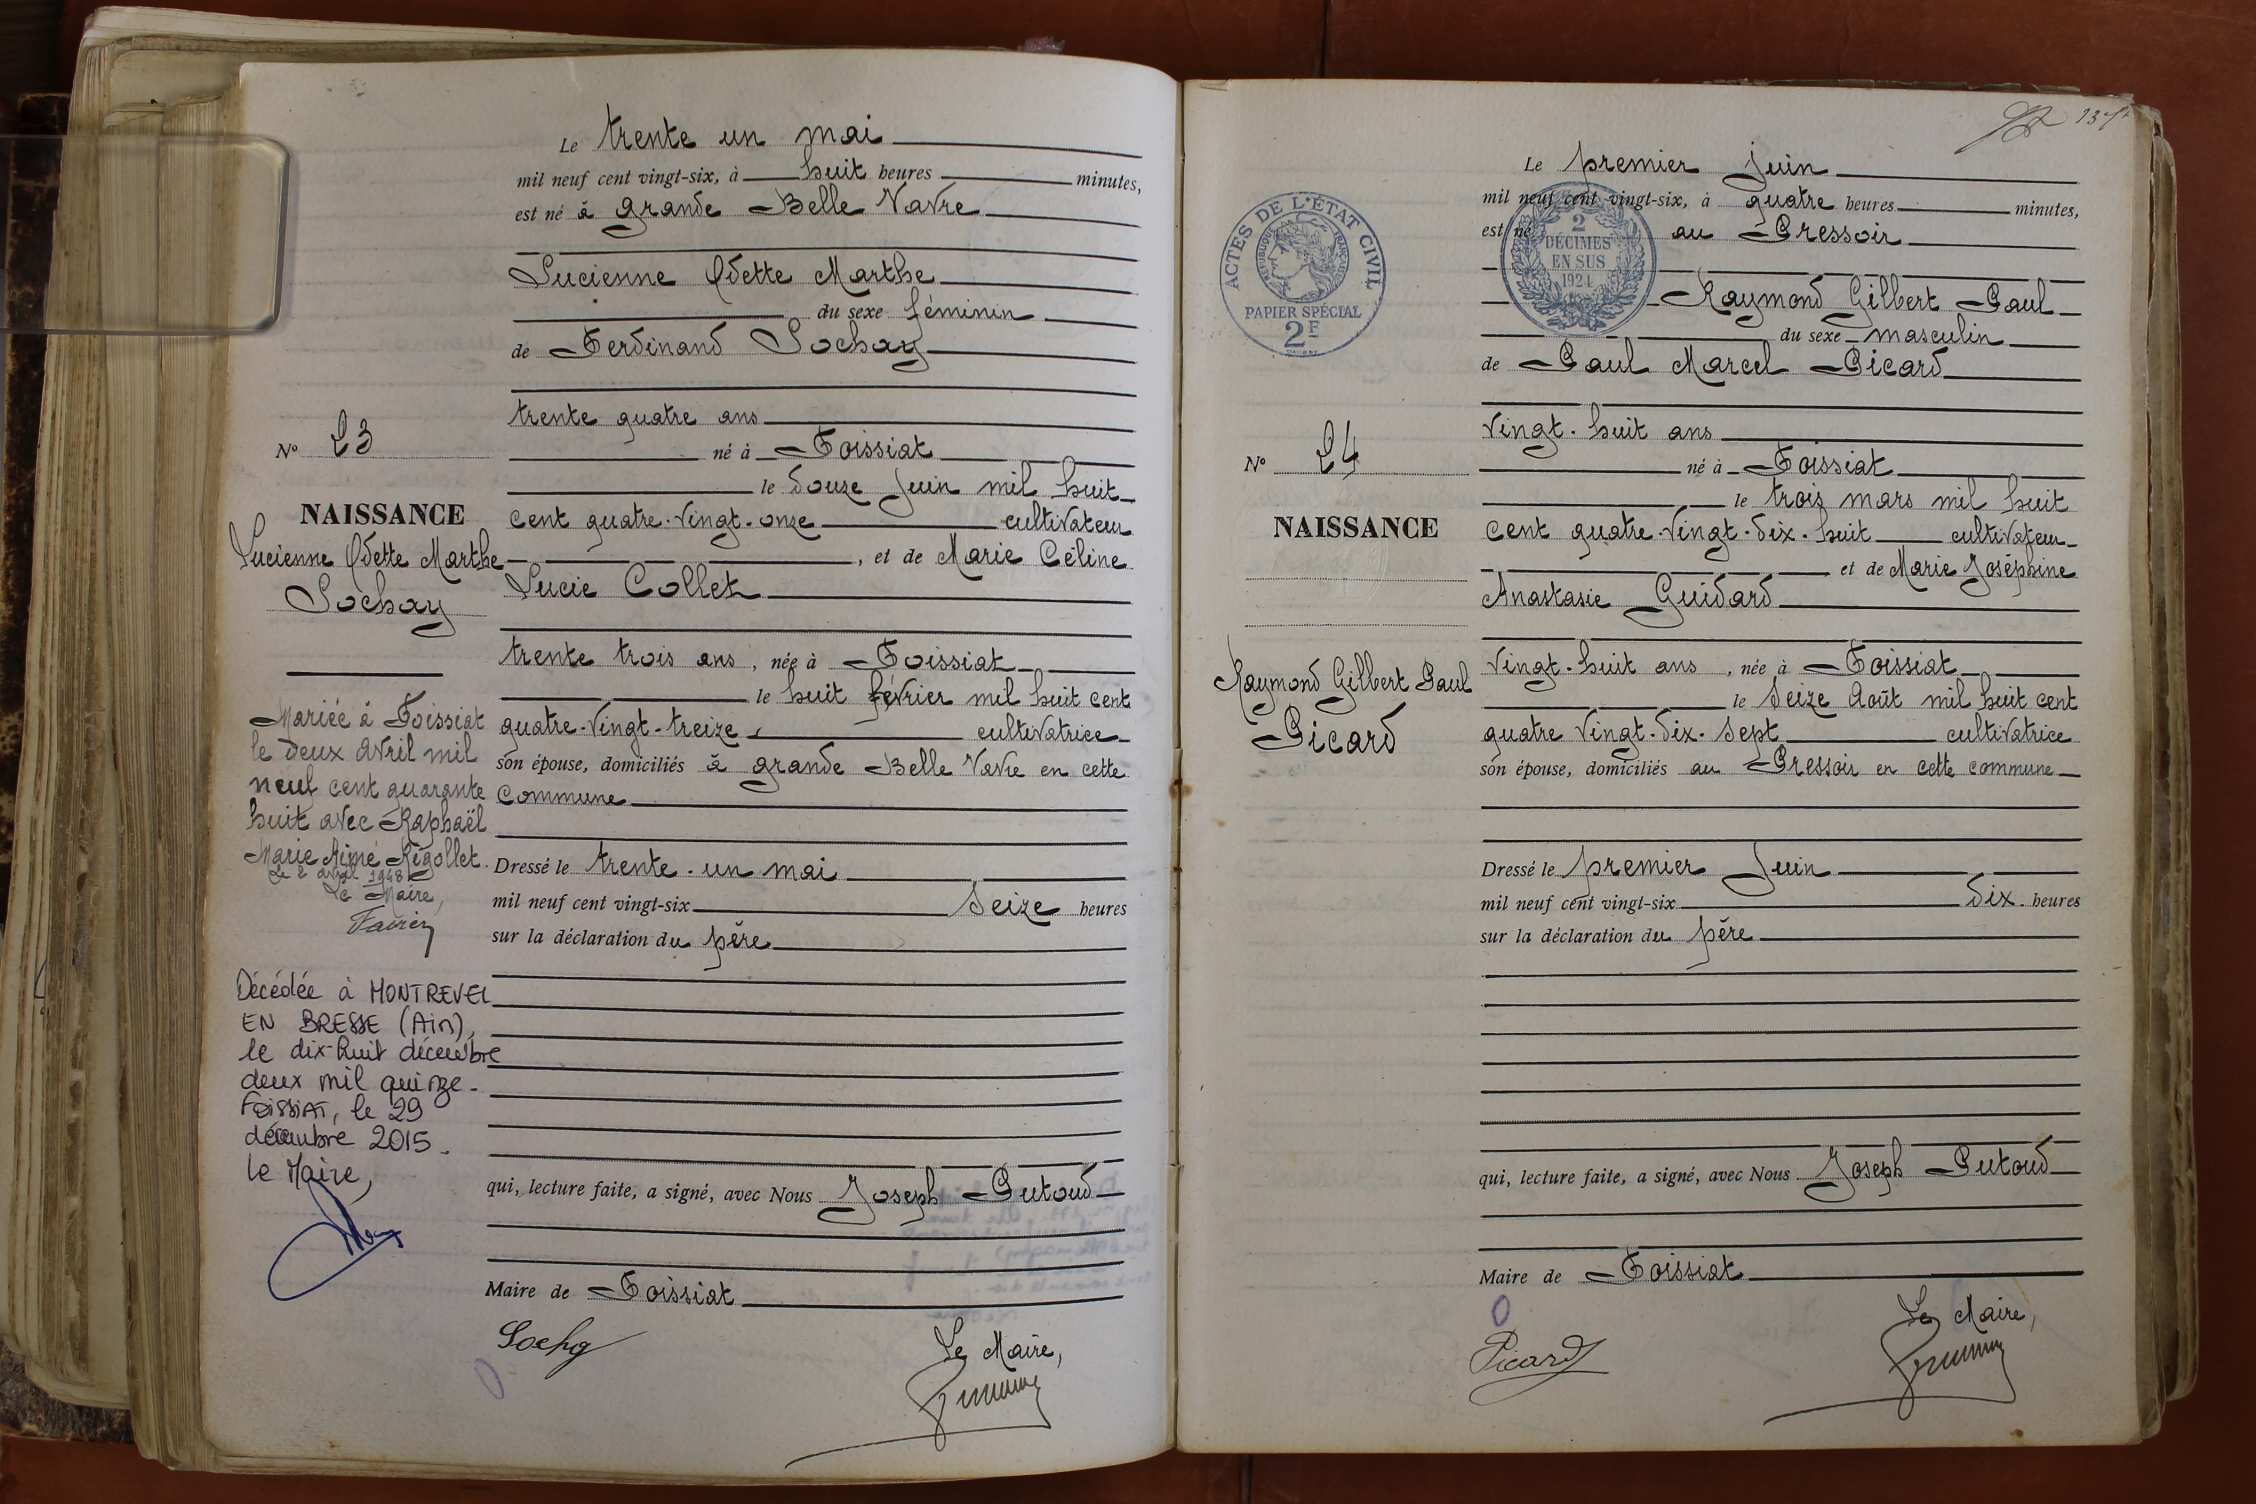 Le trente un mai
mil neuf cent vingt-six, à huit heures minutes,
est né à grande Belle Vavre
Lucienne Odette Marthe
du sexe féminin
de Ferdinand Sochay
trente quatre ans
né à Foissiat
le douze Juin mil huit
cent quatre-vingt-onze cultivateur
, et de Marie Céline
Lucie Collet
trente trois ans, née à Foissiat
le huit février mil huit cent
quatre-vingt-treize, cultivatrice
son épouse, domiciliés à grande Belle Vavre en cette
commune
Dressé le trente-un mai
mil neuf cent vingt-six Seize heures
sur la déclaration du père
qui, lecture faite, a signé, avec Nous Joseph Putoud
Maire de Foissiat
Sochay
Le Maire,
N° 23
NAISSANCE
Lucienne Odette Marthe
Sochay
Mariée à Foissiat
le deux avril mil
neuf cent quarante
huit avec Raphaël
Marie Aimé Rigollet.
Le 2 avril 1948
Le Maire,
Décédée à MONTREVEL
EN BRESSE (Ain),
le dix-huit décembre
deux mil quinze.
FOISSIAT, le 29
décembre 2015.
Le Maire,
Le premier Juin
mil neuf cent vingt-six, à quatre heures minutes,
est né au Pressoir
Raymond Gilbert Paul
du sexe masculin
de Paul Marcel Picard
vingt-huit ans
né à Foissiat
le trois mars mil huit
cent quatre-vingt-dix-huit cultivateur
et de Marie Joséphine
Anastasie Guidard
vingt-huit ans, née à Foissiat
le Seize Août mil huit cent
quatre vingt-dix-sept cultivatrice
son épouse, domiciliés au Pressoir en cette commune
Dressé le premier Juin
mil neuf cent vingt-six dix heures
sur la déclaration du père
qui, lecture faite, a signé, avec Nous Joseph Putoud
Maire de Foissiat
Picard
Le Maire,
ACTES DE L'ÉTAT CIVIL
RÉPUBLIQUE FRANÇAISE
PAPIER SPÉCIAL
2F
2
DÉCIMES
EN SUS
1924
N° 24
NAISSANCE
Raymond Gilbert Paul
Picard